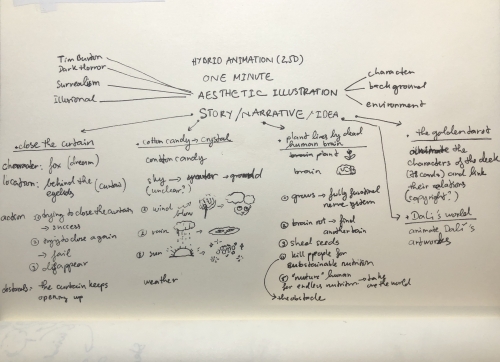 Tim Burton
Dark Horror
Surrealism
Illusional
HYBRID ANIMATION (2,5D)
ONE MINUTE
AESTHETIC ILLUSTRATION
STORY/NARRATIVE/IDEA
character
background
environment
• close the curtain
character: fox (dream)
location: behind the (curtain)
eyelids
action ① trying to close the curtain
→ success
② trying to close again
→ fail
③ disappear
obstacle: the curtain keeps
opening up
cotton candy → crystal
cotton candy
sky → ground
(unclear?)
① wind
blow
② rain
③ sun
weather
plant lives by dead
human brain
plant
brain
① grows → fully functional
nerve system
② brain rot → find
another brain
③ shed seeds
④ kill people for
substainable nutrition
⑤ "nurture" human
for endless nutrition → take
over the world
the obstacle
• the golden tarot
the
characters of the deck
(78 cards) and link
their relations
(copyright?)
• Dali's world
animate Dali's
artworks